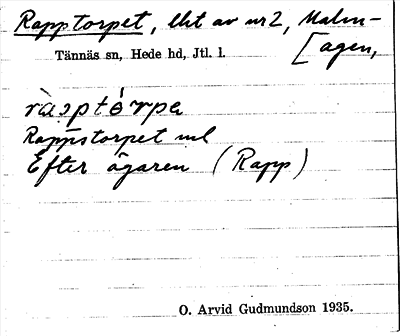 Rapptorpet, lht av nr 2, Malm-
[agen,
Tännäs sn, Hede hd, Jtl. l.
Rappstorpet ml
Efter ägaren (Rapp)
O. Arvid Gudmundson 1935.